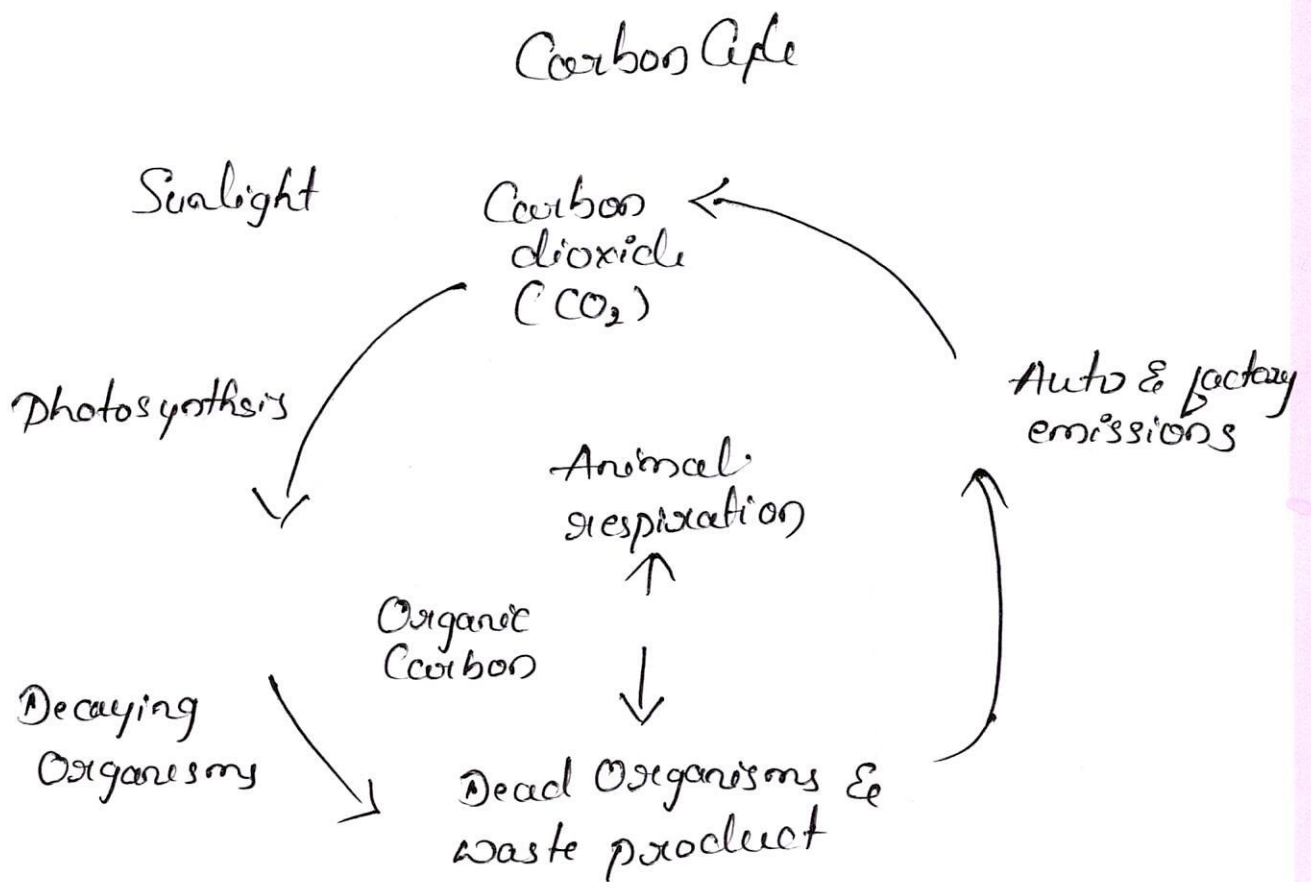 Carbon Cycle
Sunlight
Carbon
dioxide
(CO₂)
Photosynthsis
Auto & factory
emissions
Animal
respiration
Organic
Carbon
Decaying
Organisms
Dead Organisms &
waste product